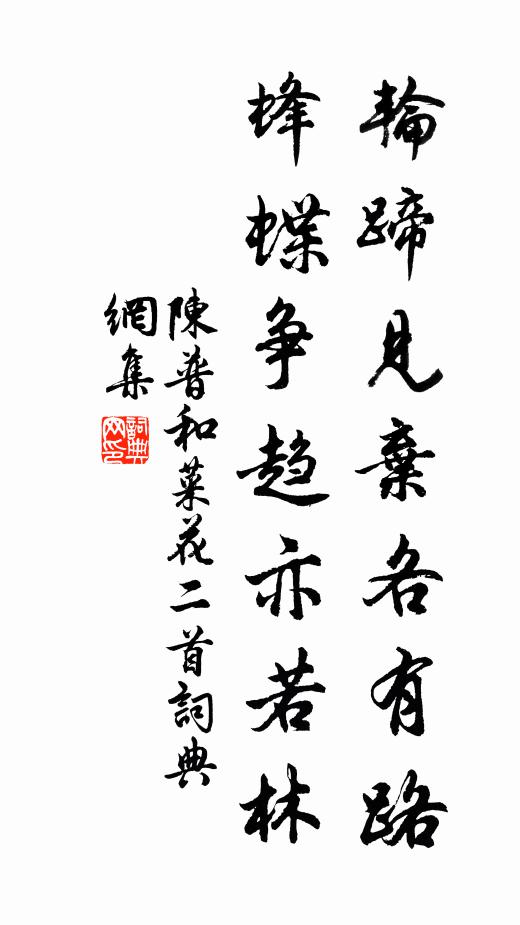 輪蹄見棄各有路
蜂蝶爭趨亦若林
陳普和菜花二首詞典
網集
詞典
网印